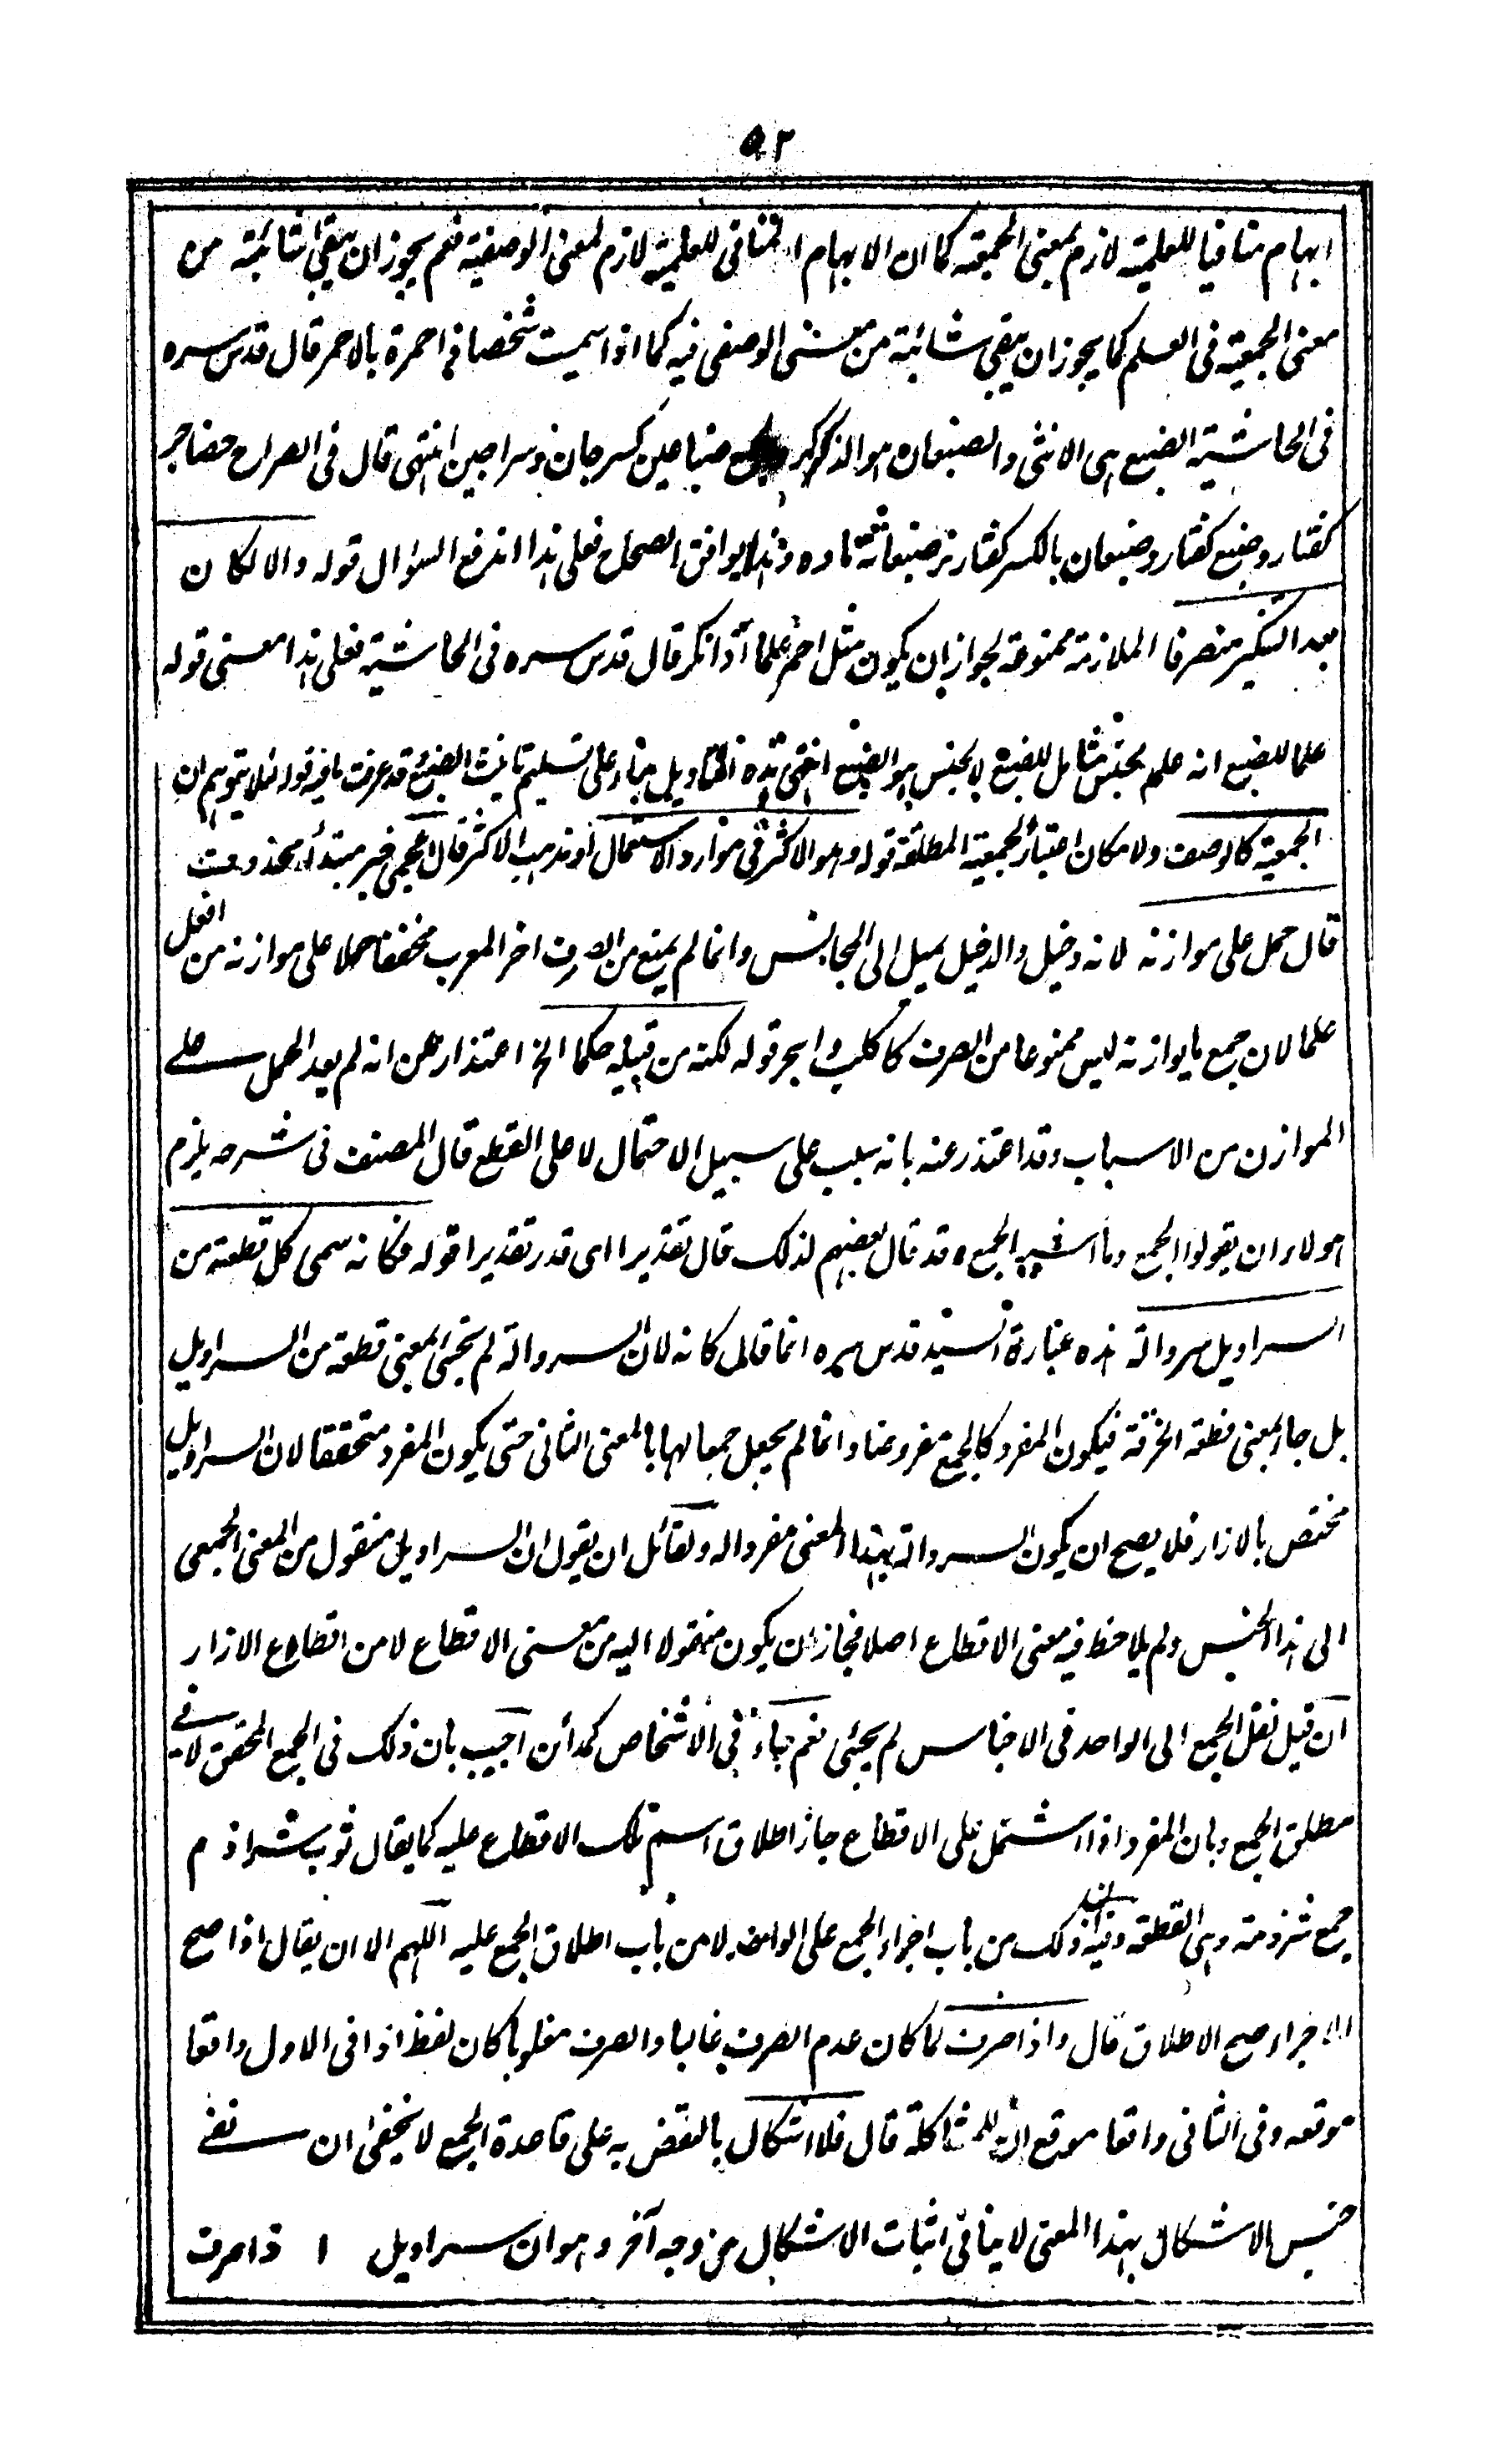 ٥٢
ابهام منافيا للعلمية لازم لمعنى الجمعية كما ان الابهام المنافى للعلمية لازم لمعنى الوصفية نعم يجوز ان يبقى شائبة من
معنى الجمعية فى العلم كما يجوز ان يبقى شائبة من معنى الوصفى فيه كما اذا سميت شخصا فى احمرة بالاحمر قال قدس سره
فى الحاشية الضبع هى الانثى والضبعان هو الذكر ضباعين كسرحان وسراحين انتهى قال فى الصراح حضاجر
كفتار وضبع كفتار وضبعان بالكسر كفتار نر ضبعانة ماده وهذا يوافق الصحاح فعلى هذا اندفع السؤال قوله والا لكان
بعد التنكير منصرفا الملازمة ممنوعة لجواز ان يكون مثل احمر علما اذا نكر قال قدس سره فى الحاشية فعلى هذا معنى قوله
علما للضبع انه علم لجنس شامل للضبع لا لجنس هو الضبع انتهى هذه التاويل بناء على تسليم تانيث الضبع وقد عرفت ما فيه قوله لئلا يتوهم ان
الجمعية كالوصف ولا مكان اعتبار الجمعية المطلقة قوله وهو الاكثر فى موارد الاستعمال او مذهب الاكثر قال اعجمى خبر مبتدأ محذوف
قال حمل على موازنه لانه دخيل والدخيل يميل الى المجانس وانما لم يمنع من الصرف اخر المعرب مخففا حملا على موازنه من افعل
علما لان جمع ما يوازنه ليس ممنوعا من الصرف كاكلب وابحر قوله لكنه من قبيله حكما الخ اعتذار عن انه لم يعد الحمل على
الموازن من الاسباب وقد اعتذر عنه بانه سبب على سبيل الاحتمال لا على القطع قال المصنف فى شرحه يلزم
هولاء ان يقولوا الجمع وما اشبه الجمع وقد قال بعضهم لذلك قال تقديرا اى قدر تقديرا قوله فكانه سمى كل قطعة من
السراويل سروالة هذه عبارة السيد قدس سره انما قال كانه لان السروالة لم يجئ لمعنى قطعة من السراويل
بل جاء بمعنى قطعة الخرقة فيكون المفرد كالجمع مفروضا وانما لم يجعل جمعا لها بالمعنى الثانى حتى يكون المفرد متحققا لان السراويل
مختص بالازار فلا يصح ان يكون السروالة بهذا المعنى مفردا له ولقائل ان يقول ان السراويل منقول من المعنى الجمعى
الى هذا الجنس ولم يلاحظ فيه معنى الاقطاع اصلا فجاز ان يكون منقولا اليه من معنى الاقطاع لا من اقطاع الازار
ان قيل نقل الجمع الى الواحد فى الاجناس لم يجئى نعم جاء فى الاشخاص كمدائن اجيب بان ذلك فى الجمع المحقق لا فى
مطلق الجمع وبان المفرد اذا اشتمل على الاقطاع جاز اطلاق اسم تلك الاقطاع عليه كما يقال ثوب شراذم
جمع شرذمة وهى القطعة وفيه ان ذلك من باب اجراء الجمع على الواحد لا من باب اطلاق الجمع عليه اللهم الا ان يقال اذا صح
الاجراء صح الاطلاق قال واذا صرف لما كان عدم الصرف غالبا والصرف مغلوبا كان لفظ اذا فى الاول واقعا
موقعه وفى الثانى واقعا موقع ان للمشاكلة قال فلا اشكال بالنقض به على قاعدة الجمع لا يخفى ان نفى
جنس الاشكال بهذا المعنى لا ينافى اثبات الاشكال من وجه آخر وهو ان سراويل اذا صرف